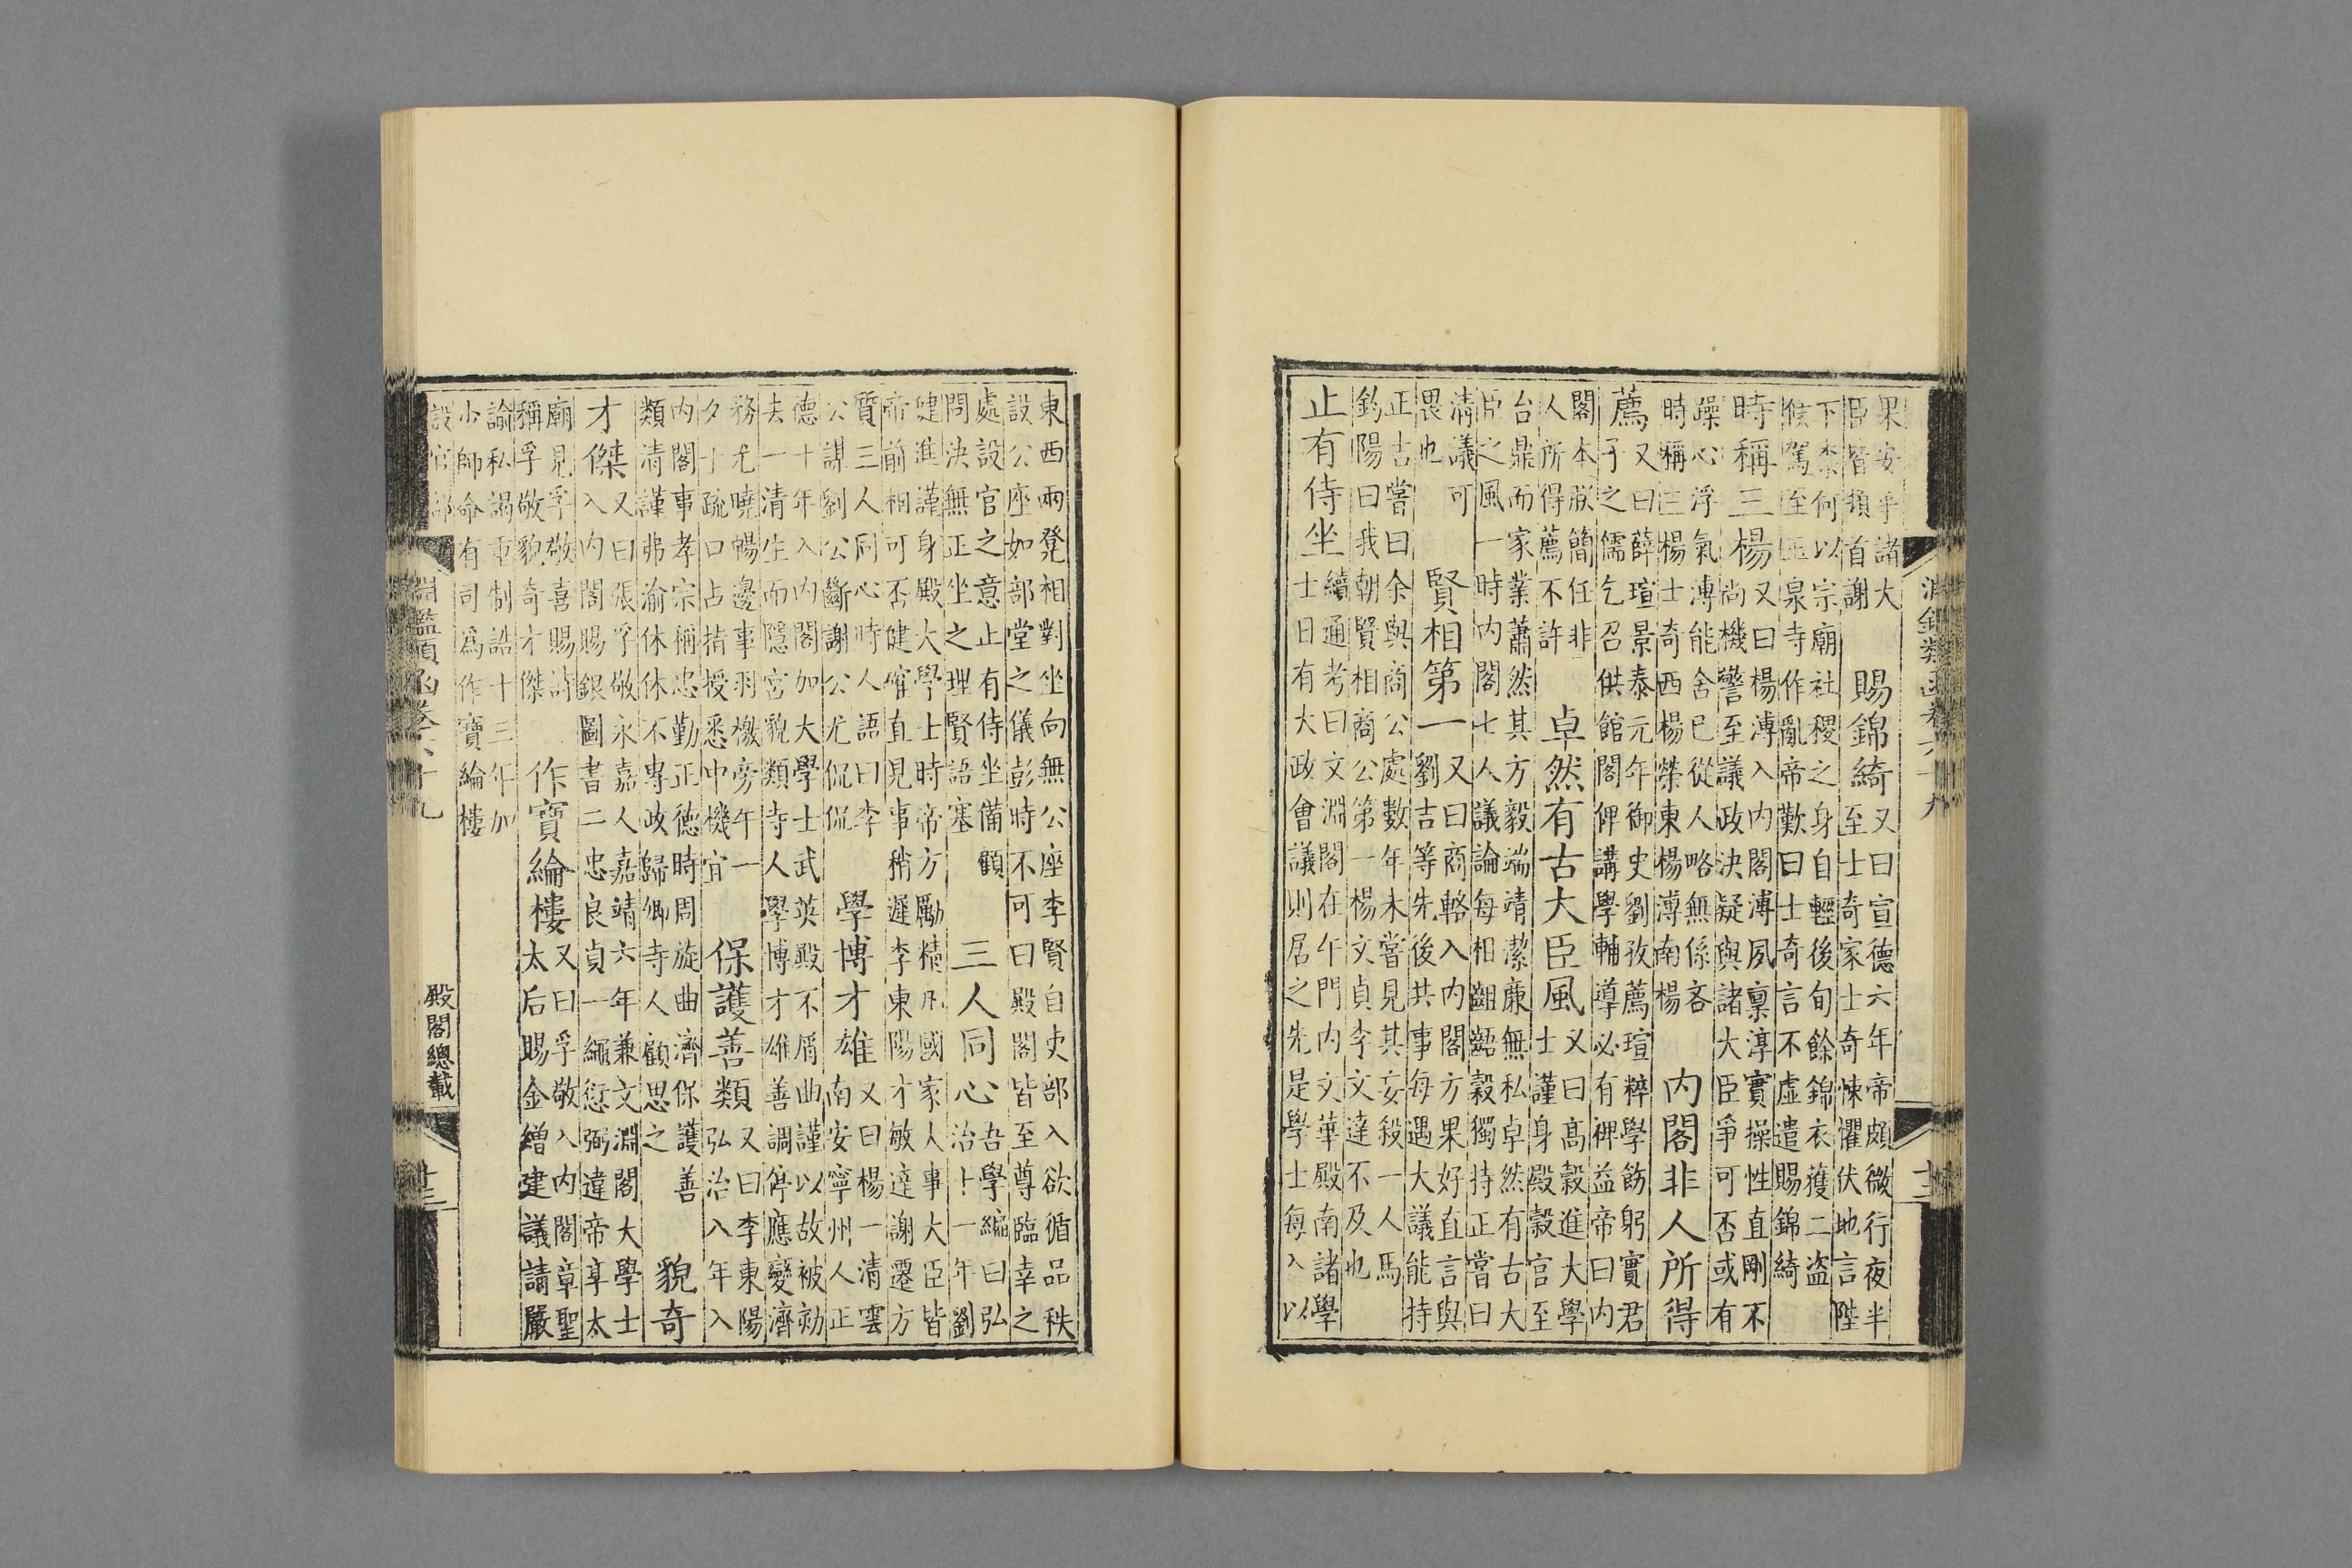 果安乎諸大
臣皆頓首謝
賜錦綺
又曰宣德六年帝頗微行夜半
至士奇家士奇悚懼伏地言陛
下柰何以宗廟社稷之身自輕後旬餘錦衣獲二盜
候駕至玉泉寺作亂帝歎曰士奇言不虛遣賜錦綺
時稱三楊
又曰楊溥入内閣溥夙稟淳實操性直剛不
尚機警至議政決疑與諸大臣爭可否或有
躁心浮氣溥能舍已從人略無係吝
時稱三楊士奇西楊榮東楊溥南楊
内閣非人所得
薦
又曰薛瑄景泰元年御史劉孜薦瑄粹學飭躬實君
子之儒乞召供館閣俾講學輔導必有裨益帝曰内
閣本朕簡任非
人所得薦不許
卓然有古大臣風
又曰高穀進大學
士謹身殿穀官至
台鼎而家業蕭然其方毅端靖潔廉無私卓然有古大
臣之風一時内閣七人議論每相齟齬穀獨持正當曰
清議可
畏也
賢相第一
又曰商輅入内閣方果好直言與
劉吉等先後共事每遇大議能持
正吉嘗曰余與商公處數年未嘗見其妄殺一人馬
鈞陽曰我朝賢相商公第一楊文貞李文達不及也
止有侍坐
續通考曰文淵閣在午門内文華殿南諸學
士日有大政會議則居之先是學士每入以
淵鑑類函卷六十九
東西兩凳相對坐向無公座李賢自吏部入欲循品秩
設公座如部堂之儀彭時不可曰殿閣皆至尊臨幸之
處設官之意止有侍坐備顧
問決無正坐之理賢語塞
三人同心
吾學編曰弘
治十一年劉
健進謹身殿大學士時帝方勵精凡國家人事大臣皆
帝前相可否健確直見事稍遲李東陽才敏達謝遷方
質三人同心時人語曰李
公謀劉公斷謝公尤侃侃
學博才雄
又曰楊一清雲
南安寧州人正
德十年入内閣加大學士武英殿不屑曲謹以故被劾
去一清生而隱宮貌類寺人學博才雄善調停應變濟
務尤曉暢邊事羽檄旁午一
夕十疏口占指授悉中機宜
保護善類
又曰李東陽
弘治八年入
内閣事孝宗稱忠勤正德時周旋曲濟保護善
類清謹弗渝休休不專政歸卿寺人顧思之
貌奇
才傑
又曰張孚敬永嘉人嘉靖六年兼文淵閣大學士
入内閣賜銀圖書二忠良貞一繩愆弼違帝享太
廟見孚敬喜賜詩
稱孚敬貌奇才傑
作寶綸樓
又曰孚敬入内閣章聖
太后賜金繒建議請嚴
諭私謁重制誥十三年加
少師命有司爲作寶綸樓
設官部
淵鑑類函卷六十九
殿閣總載